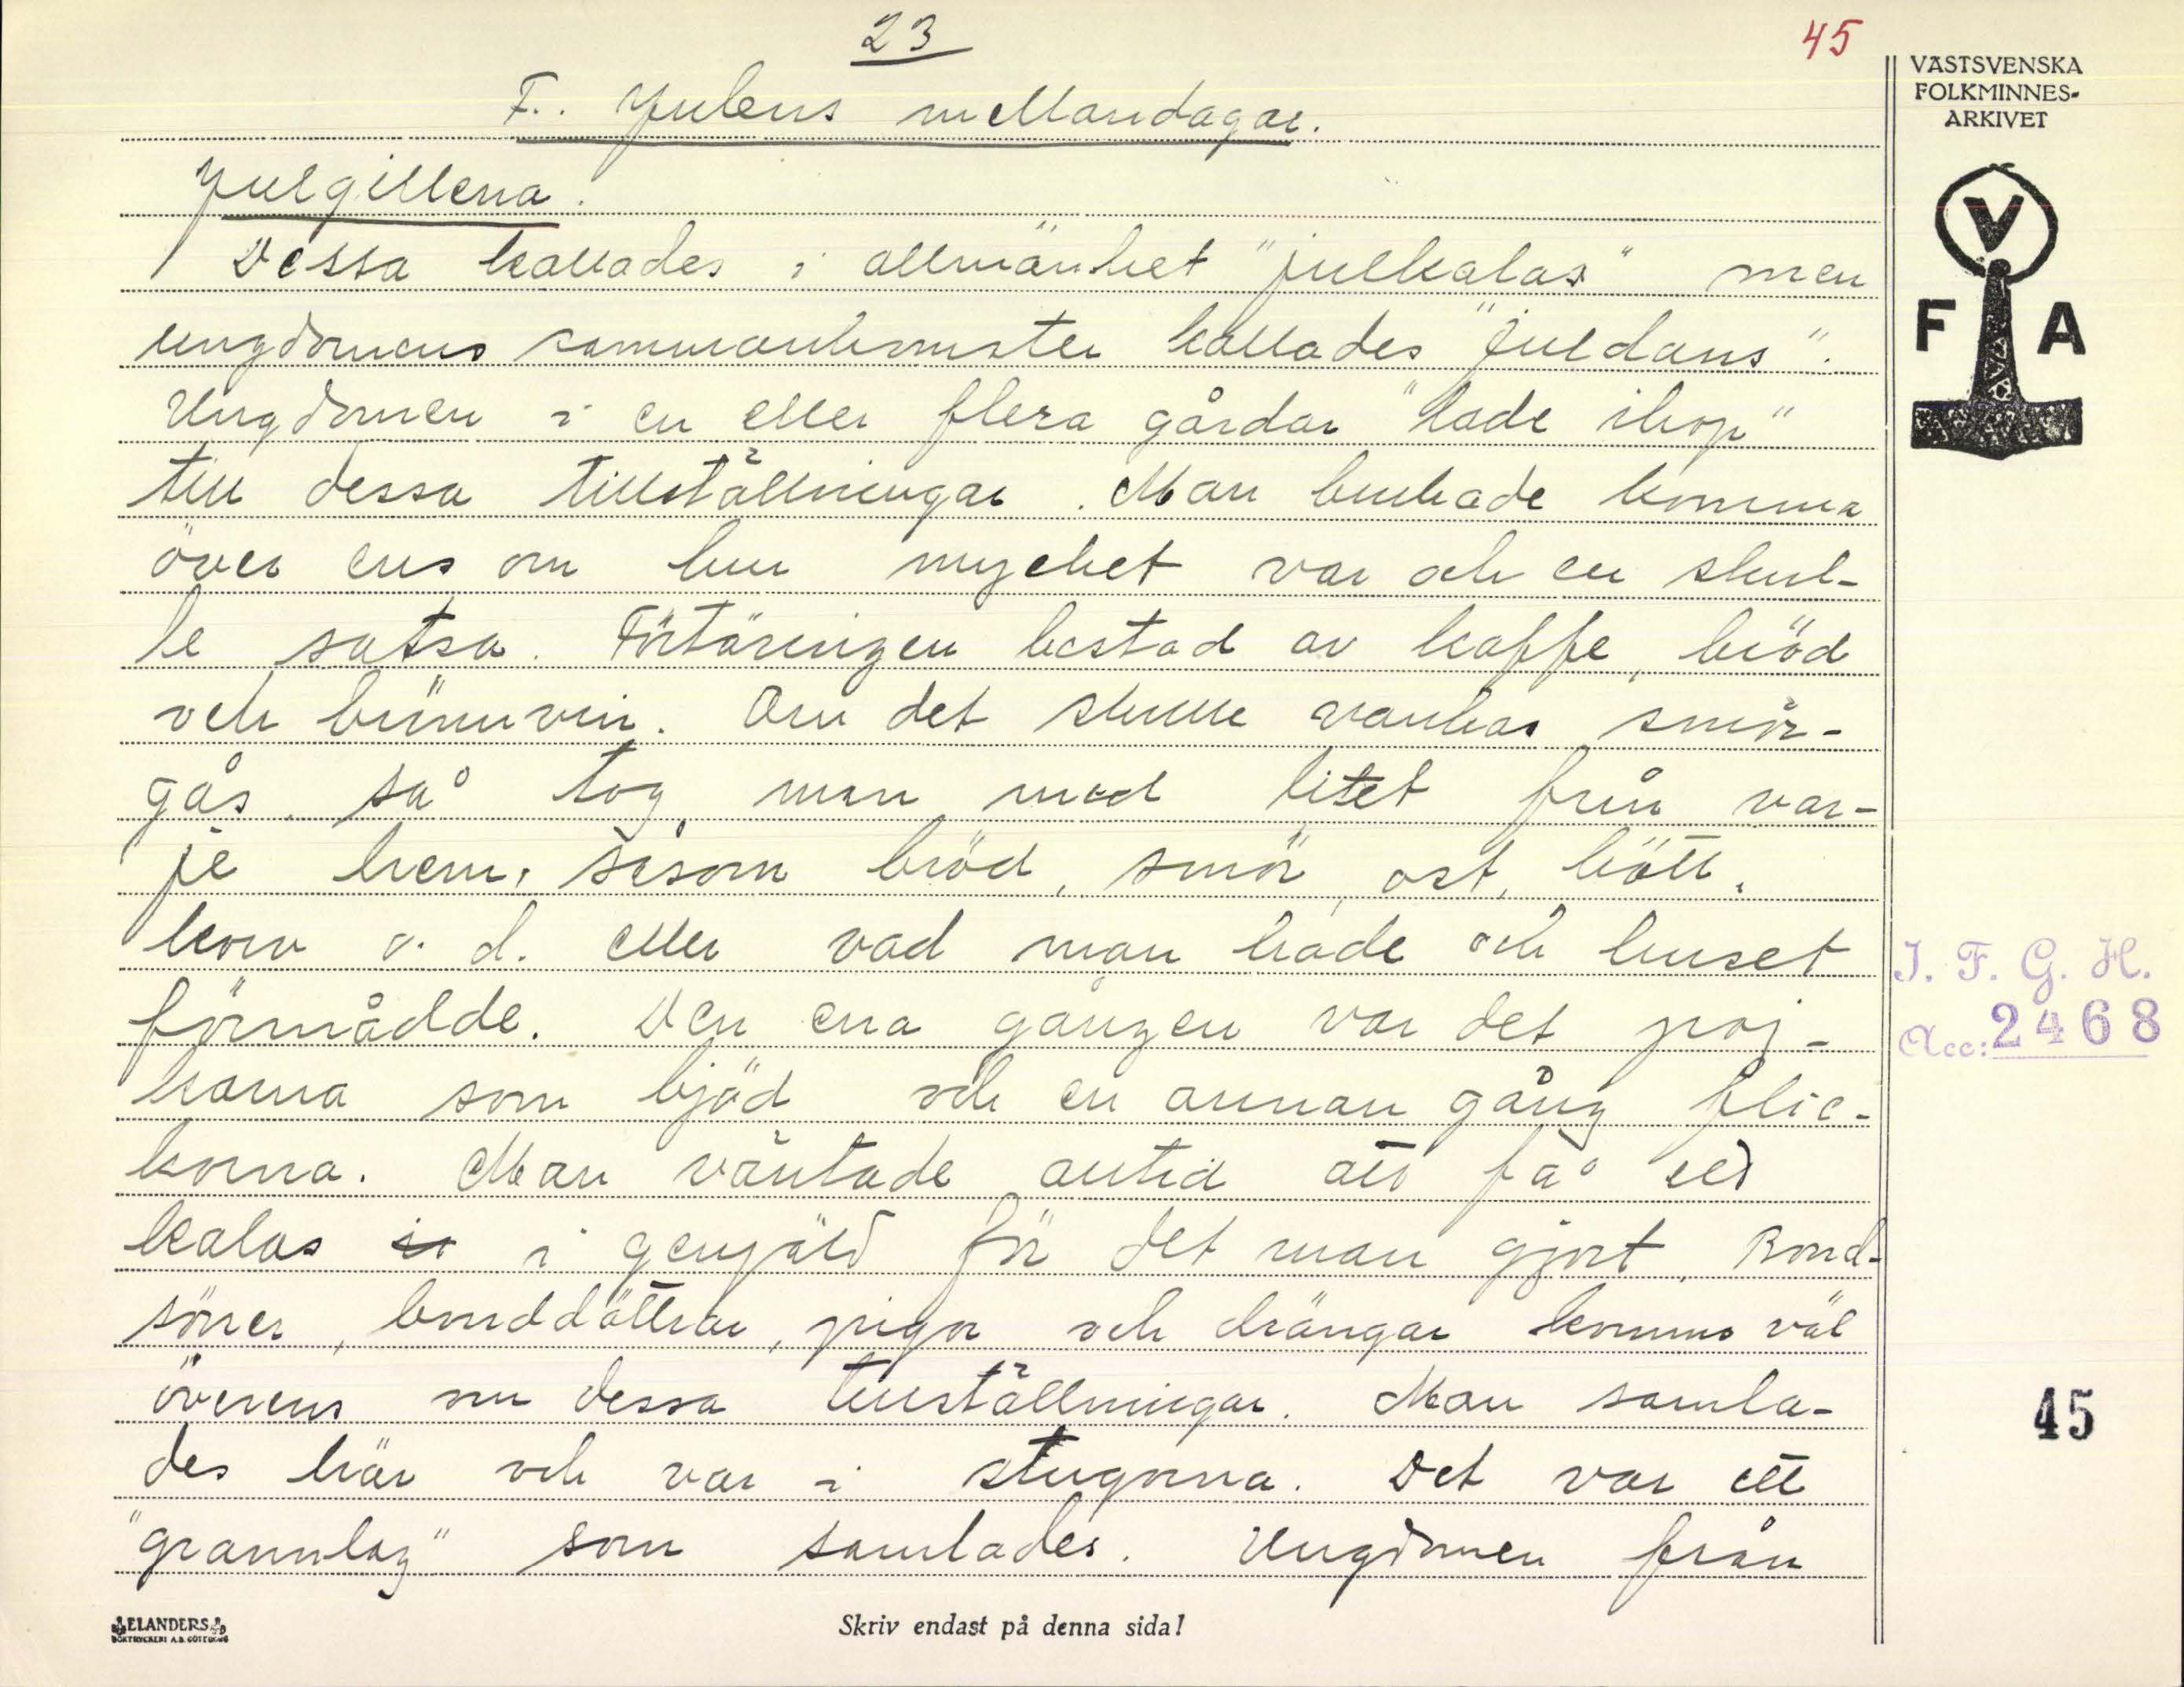 23
45
F. Julens mellandagar.
Julgillena.
Dessa kallades i allmänhet "julkalas" men
ungdomens sammankomster kallades "juldans".
Ungdomen i en eller flera gårdar "lade ihop"
till dessa tillställningar. Man brukade komma
över ens om hur mycket var och en skul-
le satsa. Förtäringen bestod av kaffe, bröd
och brännvin. Om det skulle vankas smör-
gås, så tog man med litet från var-
je hem, såsom bröd, smör, ost, kött,
korv o. d. eller vad man hade och huset
förmådde. Den ena gången var det poj-
karna som bjöd och en annan gång flic-
korna. Man väntade alltid att få ett
kalas i gengäld för det man gjort. Bond-
söner, bonddöttrar, pigor och drängar komma väl
överens om dessa tillställningar. Man samla-
des här och var i stugorna. Det var ett
"grannlag" som samlades. Ungdomen från
VÄSTSVENSKA
FOLKMINNES-
ARKIVET
V
F A
I. F. G. H.
Acc: 2468
45
ELANDERS
BOKTRYCKERI A.B. GÖTEBORG
Skriv endast på denna sida!